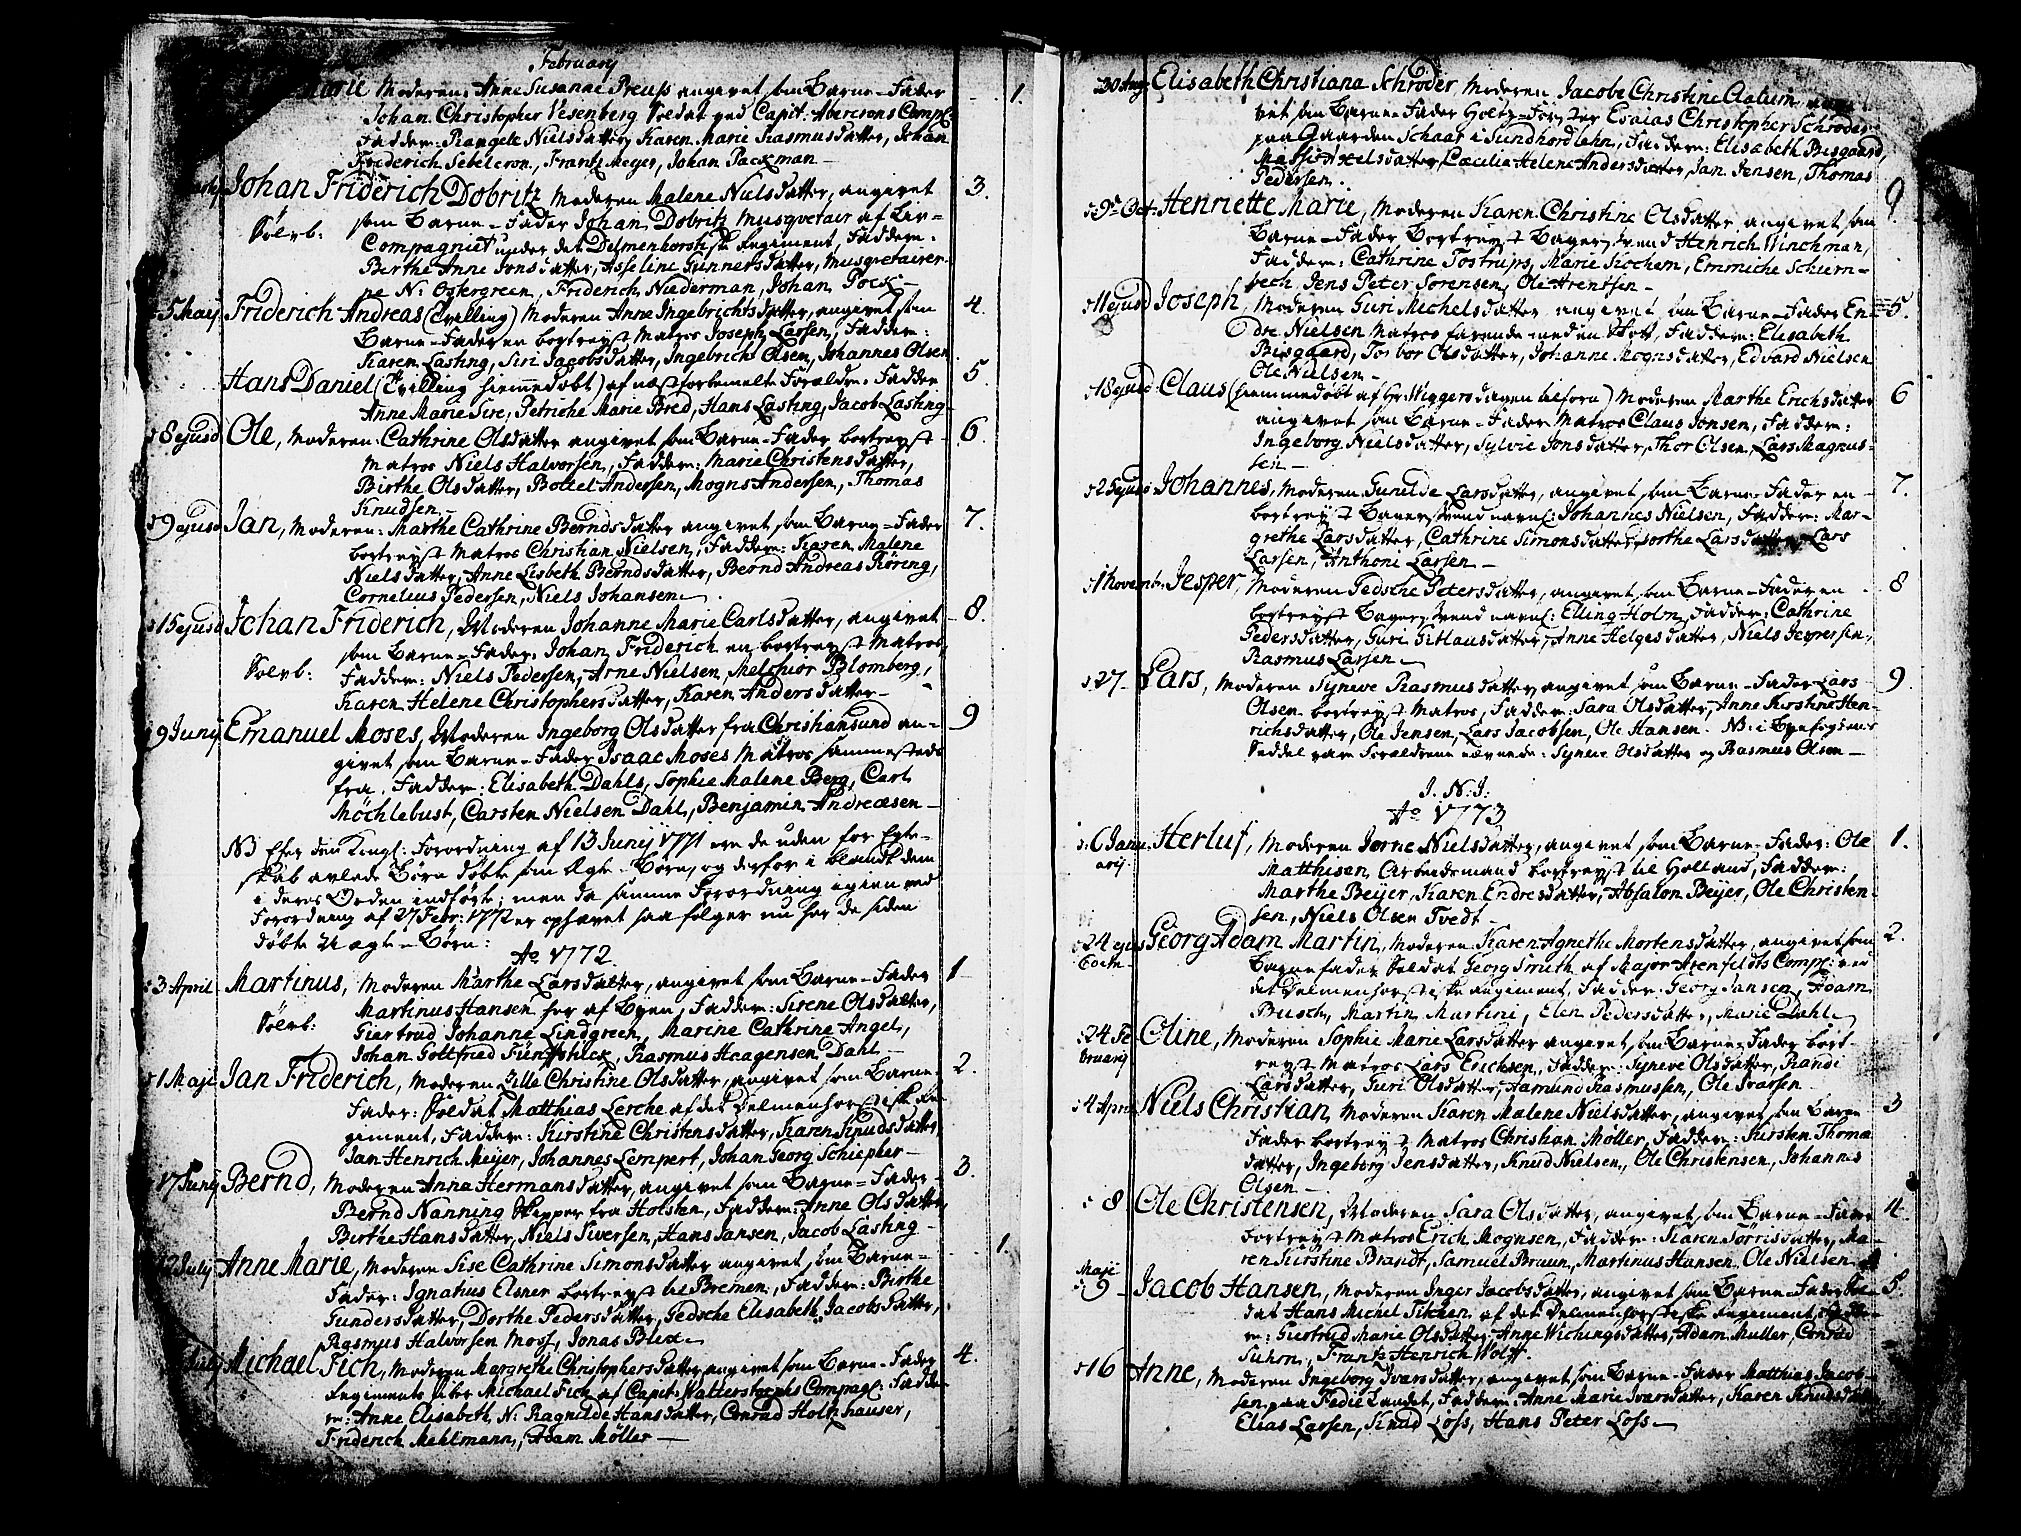 February
Marie Moderen Anne Susanne Preuss angivet som Barne-Fader
Johan Christopher Visenberg Soldat ved Capit: Abercrons Comp:
Faddere: Rangele Nielsdatter, Karen Marie Rasmusdatter, Johan
Friderich Sebelcron, Frantz Meyer, Johan Packman
Johan Friderich Dobritz Moderen Malene Nielsdatter, angivet 3.
Sölvb: som Barne-Fader Johan Dobritz Musqvetair af Liv-
Compagniet under det Delmenhorstiske Regiment, Faddere:
Berthe Anne Jonsdatter, Asseline Gunnersdatter, Musqvetairer-
ne N: Ostergreen, Friderich Niederman, Johan Pock
5 Maij Friderich Andreas (Tvilling) Moderen Anne Ingebrichtsdatter, angivet som 4.
Barne-Faderen bortreyst Matros Joseph Larsen, Faddere:
Karen Lasting, Siri Jacobsdatter, Ingebricht Olsen, Johannes Olsen
Hans Daniel (Tvilling hiemmedøbt) af næstforbemelte Forældre. Faddere 5.
Anne Marie Sire, Petriche Marie Bred, Hans Lasting, Jacob Lasting
8 ejusd Ole, Moderen Cathrine Olsdatter angivet som Barne-Fader bortreyst 6.
Matros Niels Halvorsen, Faddere: Marie Christensdatter,
Birthe Olsdatter, Bottel Andersen, Mogns Andersen, Thomas
Knudsen
9 ejusd Jan, Moderen: Marthe Cathrine Berndsdatter angivet som Barne-Fader 7.
bortreyst Matros Christian Nielsen, Faddere: Karen Malene
Nielsdatter, Anne Lisbeth Berndsdatter, Bernd Andreas Köring,
Cornelius Pedersen, Niels Johansen
15 ejusd Johan Friderich, Moderen Johanne Marie Carlsdatter, angivet 8.
som Barne-Fader Johan Friderich en bortreyst Matros,
Sölvb: Faddere: Niels Pedersen, Arne Nielsen, Melchior Blomberg,
Karen Helene Christophersdatter, Karen Andersdatter
9 Junij Emanuel Moses, Moderen Ingeborg Olsdatter fra Christiansund an- 9
givet som Barne-Fader Isaac Moses Matros sammesteds
fra. Faddere: Elisabeth Dahls, Sophie Malene Berg, Carl
Möchlebust, Carsten Nielsen Dahl, Benjamin Andreæsen
NB Efter den Kongl: Forordning af 13 Junij 1771 ere de uden for Egte-
skab avlede Börn døbte som Ægte-Börn, og derfor i blandt dem
i deres Orden indførte; men da samme Forordning igien ved
Forordning af 27 Febr: 1772 er ophævet saa følger nu her de siden
døbte Uægte-Börn:
Ao 1772.
3 April Martinus, Moderen Marthe Larsdatter, angivet som Barne-Fader 1
Martinus Hansen her af Byen, Faddere: Sirene Olsdatter,
Sölvb: Giertrud Johanne Lindgreen, Marine Cathrine Angel,
Johan Gottfried Fünfstück, Rasmus Haagensen Dahl
1 Maji Jan Friderich, Moderen Zille Christine Olsdatter, angivet som Barne- 2.
Fader: Soldat Matthias Lerche af det Delmenhorstiske Re-
giment, Faddere: Kirstine Christensdatter, Karen Knudsdatter
Jan Henrich Meyer, Johannes Lempert, Johan Georg Schiepher
17 Junij Bernd, Moderen Anna Hermansdatter, angivet som Barne-Fader 3.
Bernd Nanning Skipper fra Holsten, Faddere: Anne Olsdatter
Birthe Hansdatter, Niels Siversen, Hans Jansen, Jacob Lasting
12 July Anne Marie, Moderen Sise Cathrine Simonsdatter angivet som Barne- 1.
Fader: Ignatius Elsner bortreyst til Bremen, Faddere: Birthe
Gundersdatter, Dorthe Pedersdatter, Gedsche Elisabeth Jacobsdatter,
Rasmus Halvorsen Moss, Jonas Blix
July Michael Fich, Moderen Margrethe Christophersdatter angivet som Barne-Fader 4.
Regiments Michael Fich af Capit: Compag: Fadde-
re: Anne Elisabeth, N: Ragnilde Hansdatter, Conrad Holtzhauser,
Friderich Mehlmann, Adam Möller
30 Aug Elisabeth Christiana Schröder Moderen Jacobe Christine Aatum, angi-
vet som Barne-Fader Holtz-Forster Esaias Christopher Schröder
paa Gaarden Schaar i Sundhordlehn, Faddere: Elisabeth Bisgaard,
Axelsdatter, Cæcilia Helene Andersdatter, Jan Jensen, Thomas
Pedersen.
9 Oct Henriette Marie, Moderen Karen Christine Olsdatter angivet som 9.
Barne-Fader Bortreyst Bagersvend Henrich Winchman,
Faddere: Cathrine Tostrups, Marie Kochem, Emmiche Schiern-
bech, Jens Peter Sorensen, Ole Arentsen
11 ejusd Joseph, Moderen Guri Michelsdatter angivet som Barne-Fader En- 5.
dre Nielsen Matros farende med en Skott, Faddere: Elisabeth
Bisgaard, Torbor Olsdatter, Johanne Mognsdatter, Edvard Nielsen
Ole Nielsen
18 ejusd Claus (hiemmedøbt af Hr Wiggers dagen tilforn) Moderen Marthe Erichsdatter 6
angivet som Barne-Fader Matros Claus Jonsen, Faddere:
Ingeborg Nielsdatter, Sylvie Jonsdatter, Thor Olsen, Lars Magnus-
sen
25 ejusd Johannes, Moderen Gunilde Larsdatter, angivet som Barne-Fader en 7.
bortreyst Bagersvend navnl: Johannes Nielsen, Faddere: Mar-
grethe Larsdatter, Cathrine Simonsdatter, Dorthe Larsdatter, Lars
Larsen, Anthoni Larsen
1 Novembr. Jesper, Moderen Gedsche Petersdatter, angivet som Barne-Fader en 8
bortreyst Bagersvend navnl: Elling Holm, Faddere: Cathrine
Pedersdatter, Guri Gitlausdatter, Anne Helgesdatter, Niels Jespersen,
Rasmus Larsen
27 Lars, Moderen Syneve Rasmusdatter, angivet som Barne-Fader Lars 9.
Olsen bortreyst Matros, Faddere: Sara Olsdatter, Anne Kirstine Hen-
richsdatter, Ole Jensen, Lars Jacobsen, Ole Hansen. NB: i Byefogdens
Seddel vare Forældrene nævnede: Syneve Olsdatter og Rasmus Olsen
I. N. J:
Ao 1773
6 Janu- Herluf, Moderen Jorne Nielsdatter, angivet som Barne-Fader: Ole 1.
arij. Matthisen, Arbeidsmand bortreyst til Holland, Faddere:
Marthe Beyer, Karen Endresdatter, Absalon Beyer, Ole Christen-
sen, Niels Olsen Tvedt
24 ejus Georg Adam Martin, Moderen Karen Agnethe Mortensdatter, angivet som 2.
Eodem Barnefader Soldat Georg Smith af Major Arenfeldts Comp: ved
det Delmenhorstiske Regiment, Faddere: Georg Jansen, Adam
Busch, Martin Martini, Elen Pedersdatter, Marie Dahl
24 Fe- Oline, Moderen Sophie Marie Larsdatter angivet som Barne-Fader bort-
bruarij reyst Matros Lars Erichsen, Faddere: Syneve Olsdatter, Randi
Larsdatter, Guri Olsdatter, Aamund Rasmussen, Ole Ivarsen
4 April Niels Christian, Moderen Karen Malene Nielsdatter, angivet som Barne- 3
Fader bortreyst Matros Christian Møller, Faddere: Kirsten Thomæ
datter, Ingeborg Jensdatter, Knud Nielsen, Ole Christensen, Johannes
Olsen
8 Ole Christensen, Moderen Sara Olsdatter, angivet som Barne-Fader 4
bortreyst Matros Erich Mognsen, Faddere: Karen Torrisdatter, Ma-
ren Kirstine Brandt, Samuel Bruun, Martinus Hansen, Ole Nielsen
Maji
9 Jacob Hansen, Moderen Inger Jacobsdatter, angivet som Barne-Fader Sol- 5.
dat Hans Michel af det Delmenhorstiske Regiment, Fadde-
re: Giertrud Marie Olsdatter, Anne Wichingsdatter, Adam Muller, Conrad
Suhm, Frantz Henrich Wolff.
16 Anne, Moderen Ingeborg Ivarsdatter, angivet som Barne-Fader Matthias Jacob-
sen paa Fedie Landet, Faddere: Anne Marie Ivarsdatter, Karen Knudsdatter
Elias Larsen, Knud Loss, Hans Peter Loss